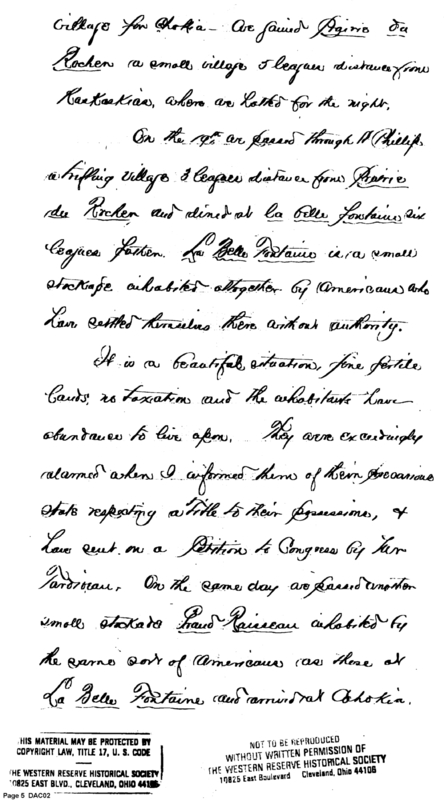 village for Chokia - We gained Prairie Du
Rochen a small village 5 leagues distance from
Kaskaskias, where we halted for the night.
On the 19th we passed through St Philips
a trifling village 3 leagues distance from Prairie
du Rochen and dined at la belle fontaine six
leagues further. La Belle Fontaine is a small
stockade inhabited altogether by Americans who
have settled themselves there without authority.
It is a beautiful situation, fine fertile
lands, no taxation and the inhabitants have
abundance to live upon. They were exceedingly
alarmed when I informed them of their precarious
state respecting a title to their possessions, &
have sent on a Petition to Congress by
Tardiveau. On the same day we passed another
small stockade Grand Ruisseau inhabited by
the same sort of Americans as those at
La Belle Fontaine and arrived at Cahokia.
THIS MATERIAL MAY BE PROTECTED BY
COPYRIGHT LAW, TITLE 17, U. S. CODE
THE WESTERN RESERVE HISTORICAL SOCIETY
10825 EAST BLVD., CLEVELAND, OHIO 44106
NOT TO BE REPRODUCED
WITHOUT WRITTEN PERMISSION OF
THE WESTERN RESERVE HISTORICAL SOCIETY
10825 East Boulevard Cleveland, Ohio 44106
Page 5 DAC02